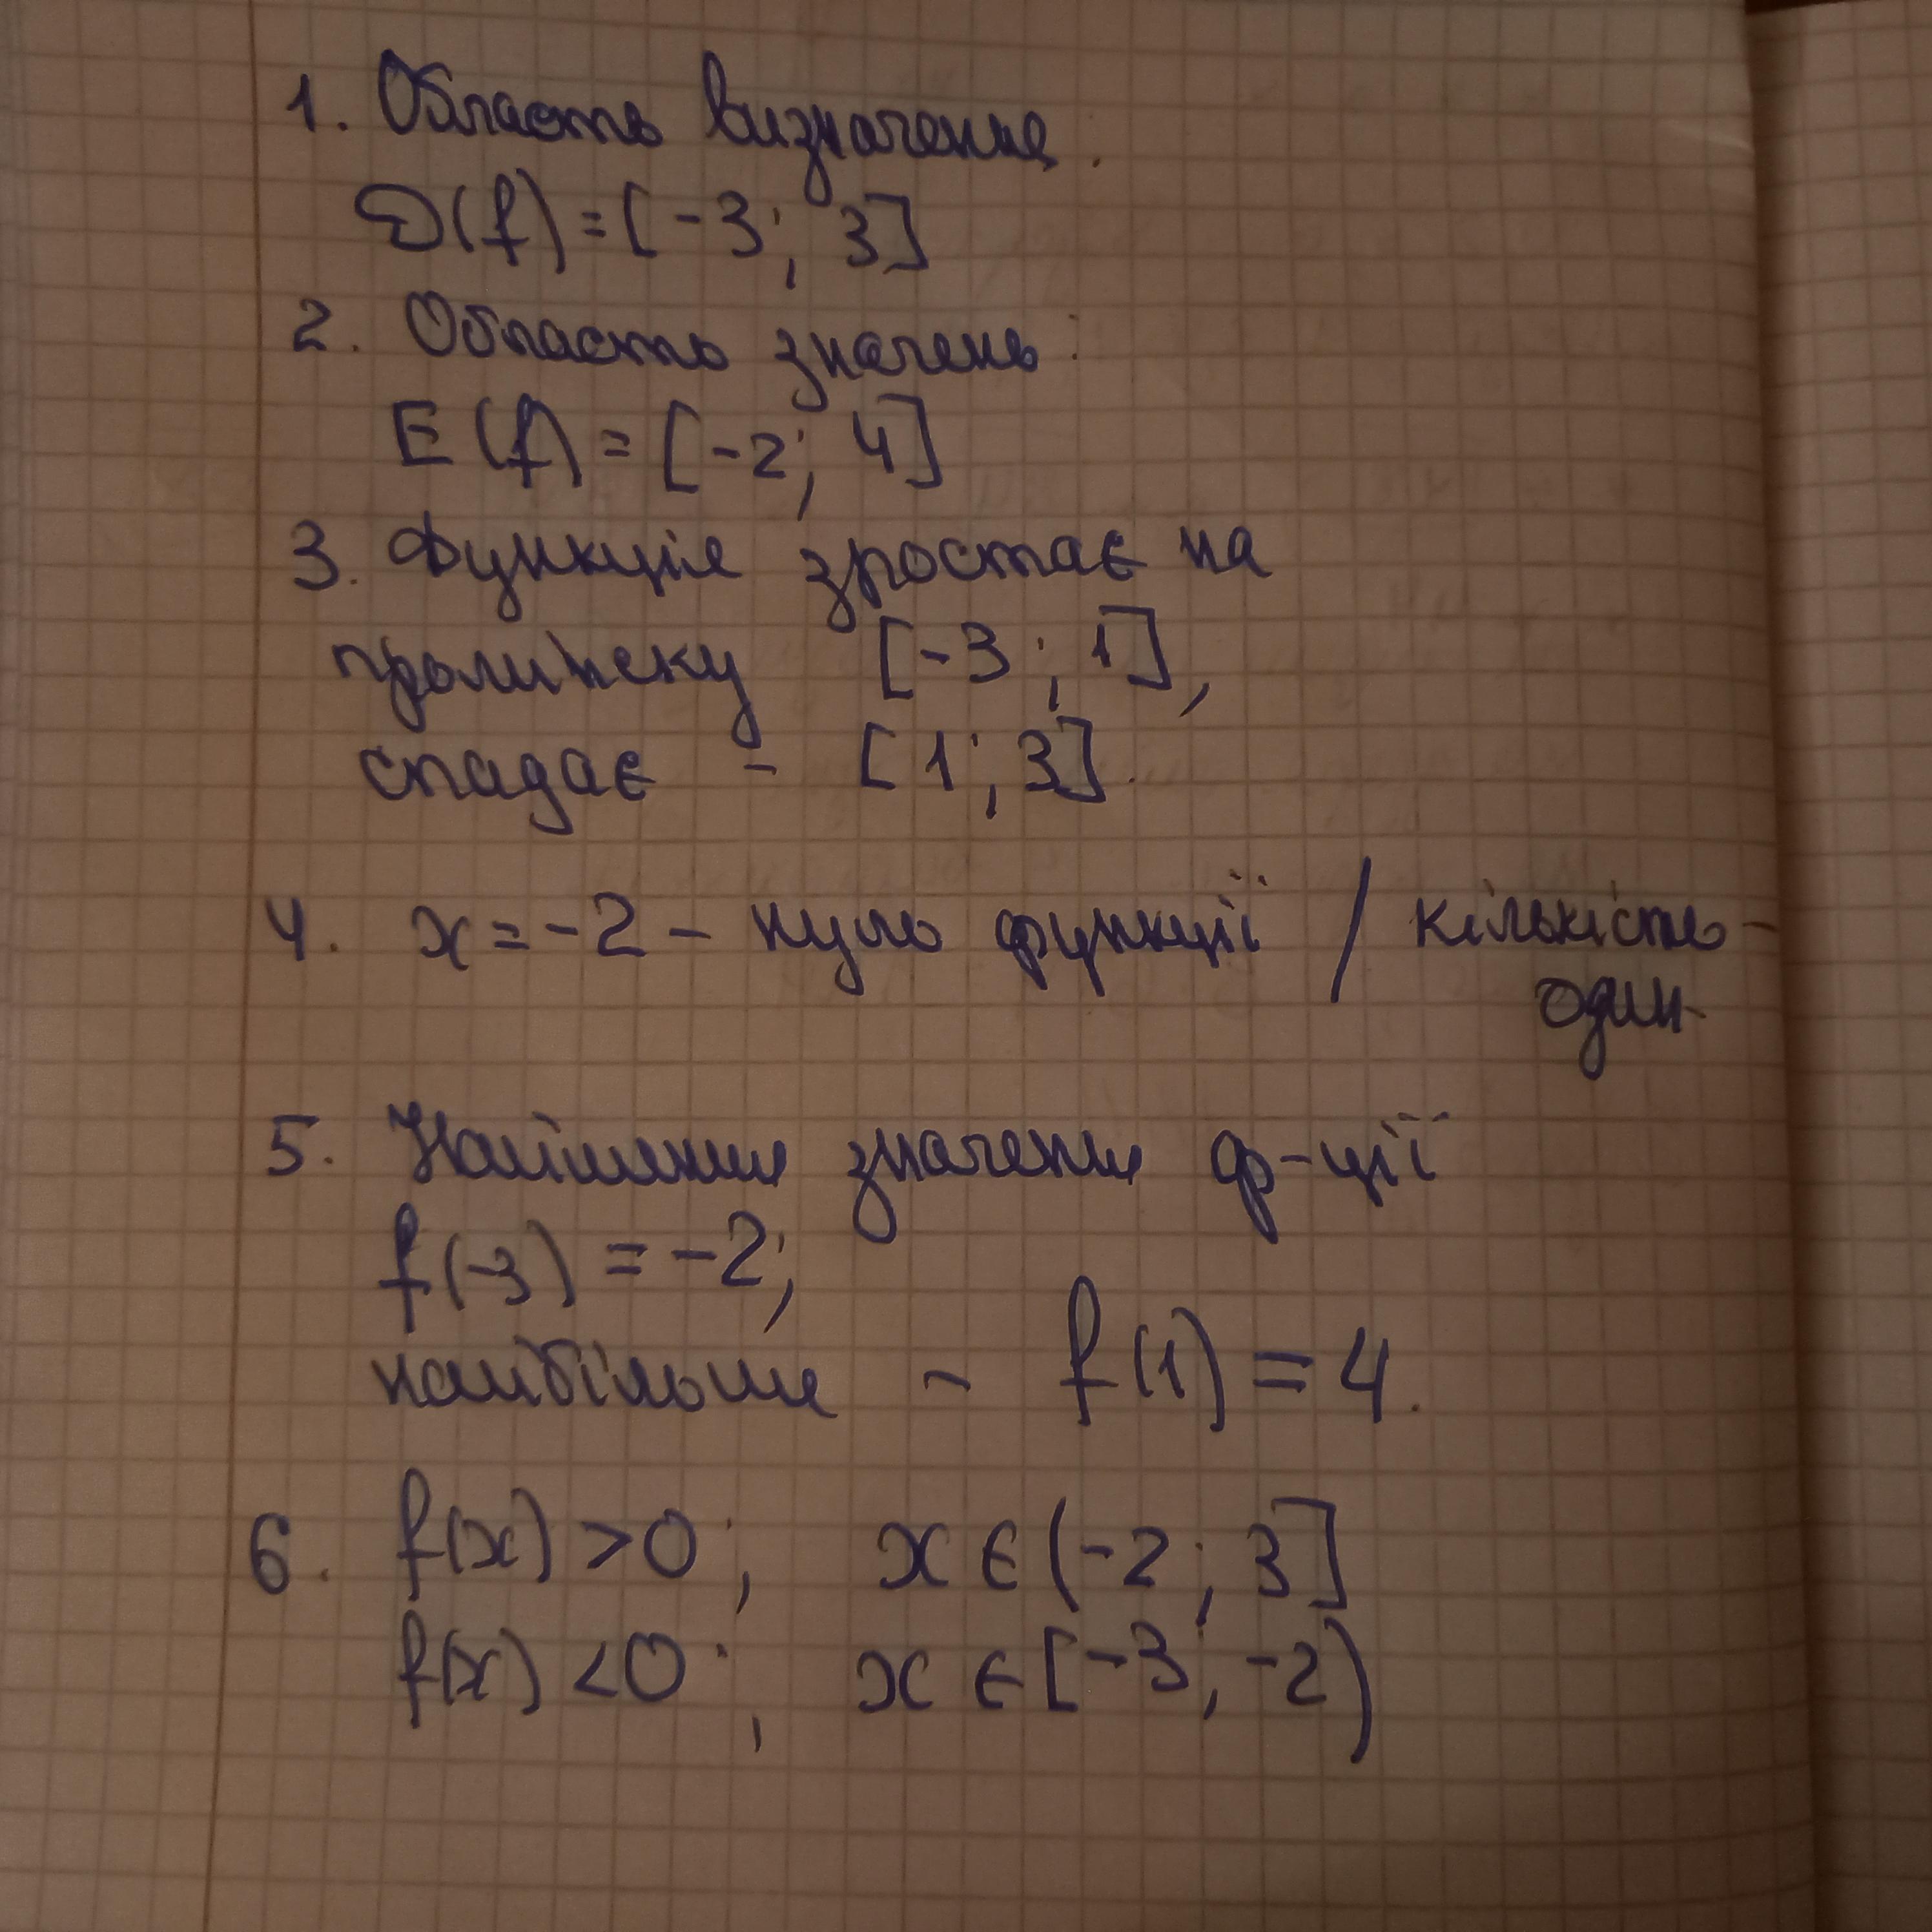 1. Область визначення:
D(f) = [-3; 3]
2. Область значень:
E(f) = [-2; 4]
3. Функція зростає на
проміжку [-3; 1],
спадає - [1; 3].
4. x = -2 - нуль функції / кількість -
один.
5. Найменше значення ф-ції
f(-3) = -2;
найбільше - f(1) = 4.
6. f(x) > 0; x ∈ (-2; 3]
f(x) < 0; x ∈ [-3; -2)